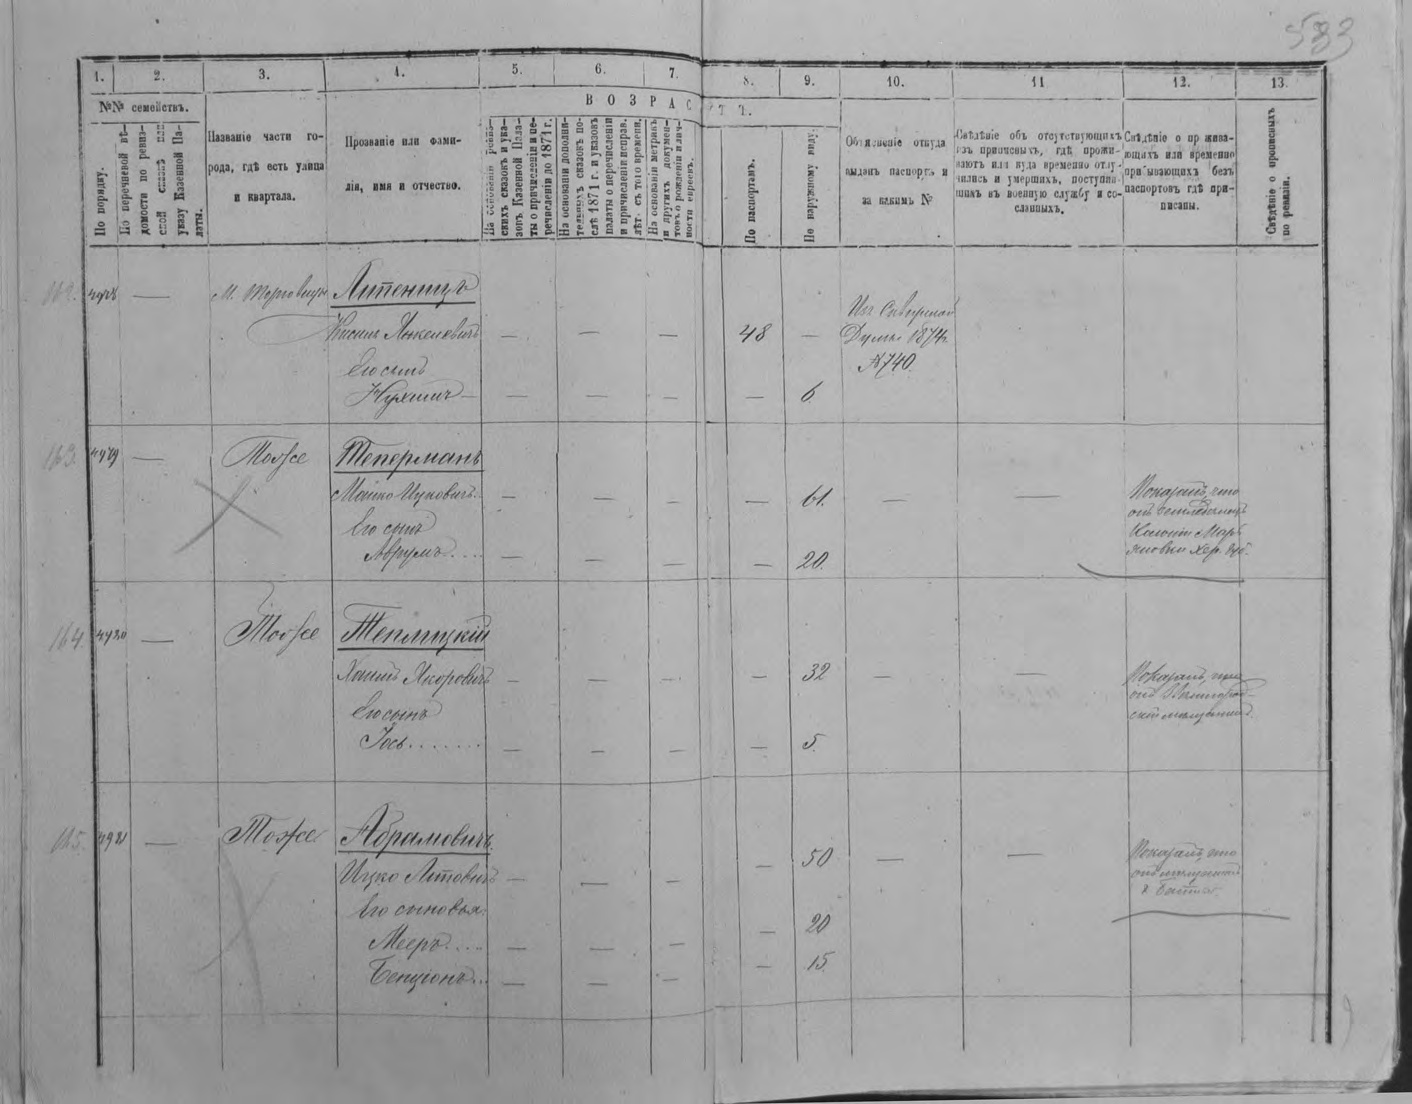 583
1. 2. 3. 4. 5. 6. 7. 8. 9. 10. 11 12. 13.
№№ семействъ.
ВОЗРАСТЪ.
По порядку.
По перечневой вѣ-
домости по ревиз-
ской сказкѣ или
указу Казенной Па-
латы.
Названіе части го-
рода, гдѣ есть улица
и квартала.
Прозваніе или фами-
лія, имя и отчество.
На основаніи ревиз-
скихъ сказокъ и ука-
зовъ Казенной Пала-
ты о причисленіи и пе-
речисленіи до 1871 г.
На основаніи дополни-
тельныхъ сказокъ по-
слѣ 1871 г. и указовъ
палаты о перечисленіи
и причисленіи исправ.
лѣт. съ того времени.
На основаніи метрикъ
и другихъ докумен-
товъ о рожденіи и лич-
ности евреевъ.
По паспортамъ.
По наружному виду.
Объясненіе откуда
выданъ паспортъ и
за какимъ №
Свѣдѣніе объ отсутствующихъ
изъ приписныхъ, гдѣ прожи-
ваютъ или куда временно отлу-
чились и умершихъ, поступив-
шихъ въ военную службу и со-
сланныхъ.
Свѣдѣніе о прожива-
ющихъ или временно
прибывающихъ безъ
паспортовъ гдѣ при-
писаны.
Свѣдѣніе о прописныхъ
по ревизіи.
162. — М. Торговица Литеницъ
Кисиль Янкелевичъ — — — 48 — Изъ
Думы 1874 г.
№ 740.
Его сынъ
Нухимъ — — — — — 6
163. — Тоже Теперманъ
Машко Ицковичъ — — — — 61. — — Показалъ, что
Его сынъ
Аврумъ.... — — — — 20.
164. 4920 — Тоже Теплицкій
Хаимъ Якоровичъ — — — — 32 — — Показалъ, что
Его сынъ
Іось........ — — — — 5.
165. 4921 — Тоже Абрамовичъ
Ицко Лейбовичъ — — — — 50 — — Показалъ, что
Его сыновья:
Мееръ.... — — — — 20
Бенціонъ... — — — — 15